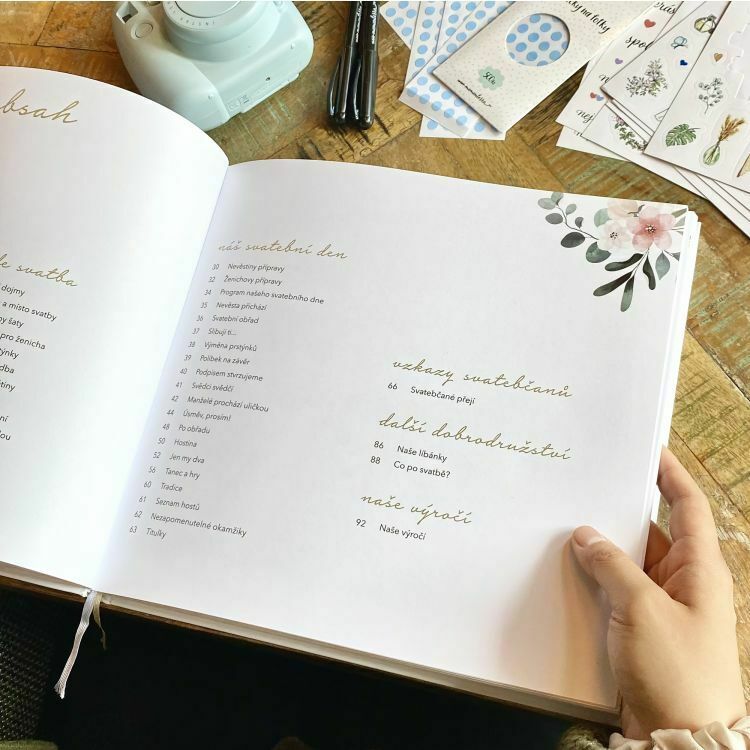 náš svatební den
30 Nevěstiny přípravy
32 Ženichovy přípravy
34 Program našeho svatebního dne
35 Nevěsta přichází
36 Svatební obřad
37 Slibuji ti...
38 Výměna prstýnků
39 Polibek na závěr
40 Podpisem stvrzujeme
41 Svědci svědčí
42 Manželé prochází uličkou
44 Úsměv, prosím!
48 Po obřadu
50 Hostina
52 Jen my dva
56 Tanec a hry
60 Tradice
61 Seznam hostů
62 Nezapomenutelné okamžiky
63 Titulky
vzkazy svatebčanů
66 Svatebčané přejí
další dobrodružství
86 Naše líbánky
88 Co po svatbě?
naše výročí
92 Naše výročí
svatba
dojmy
a místo svatby
šaty
pro ženicha
na fotky
50x